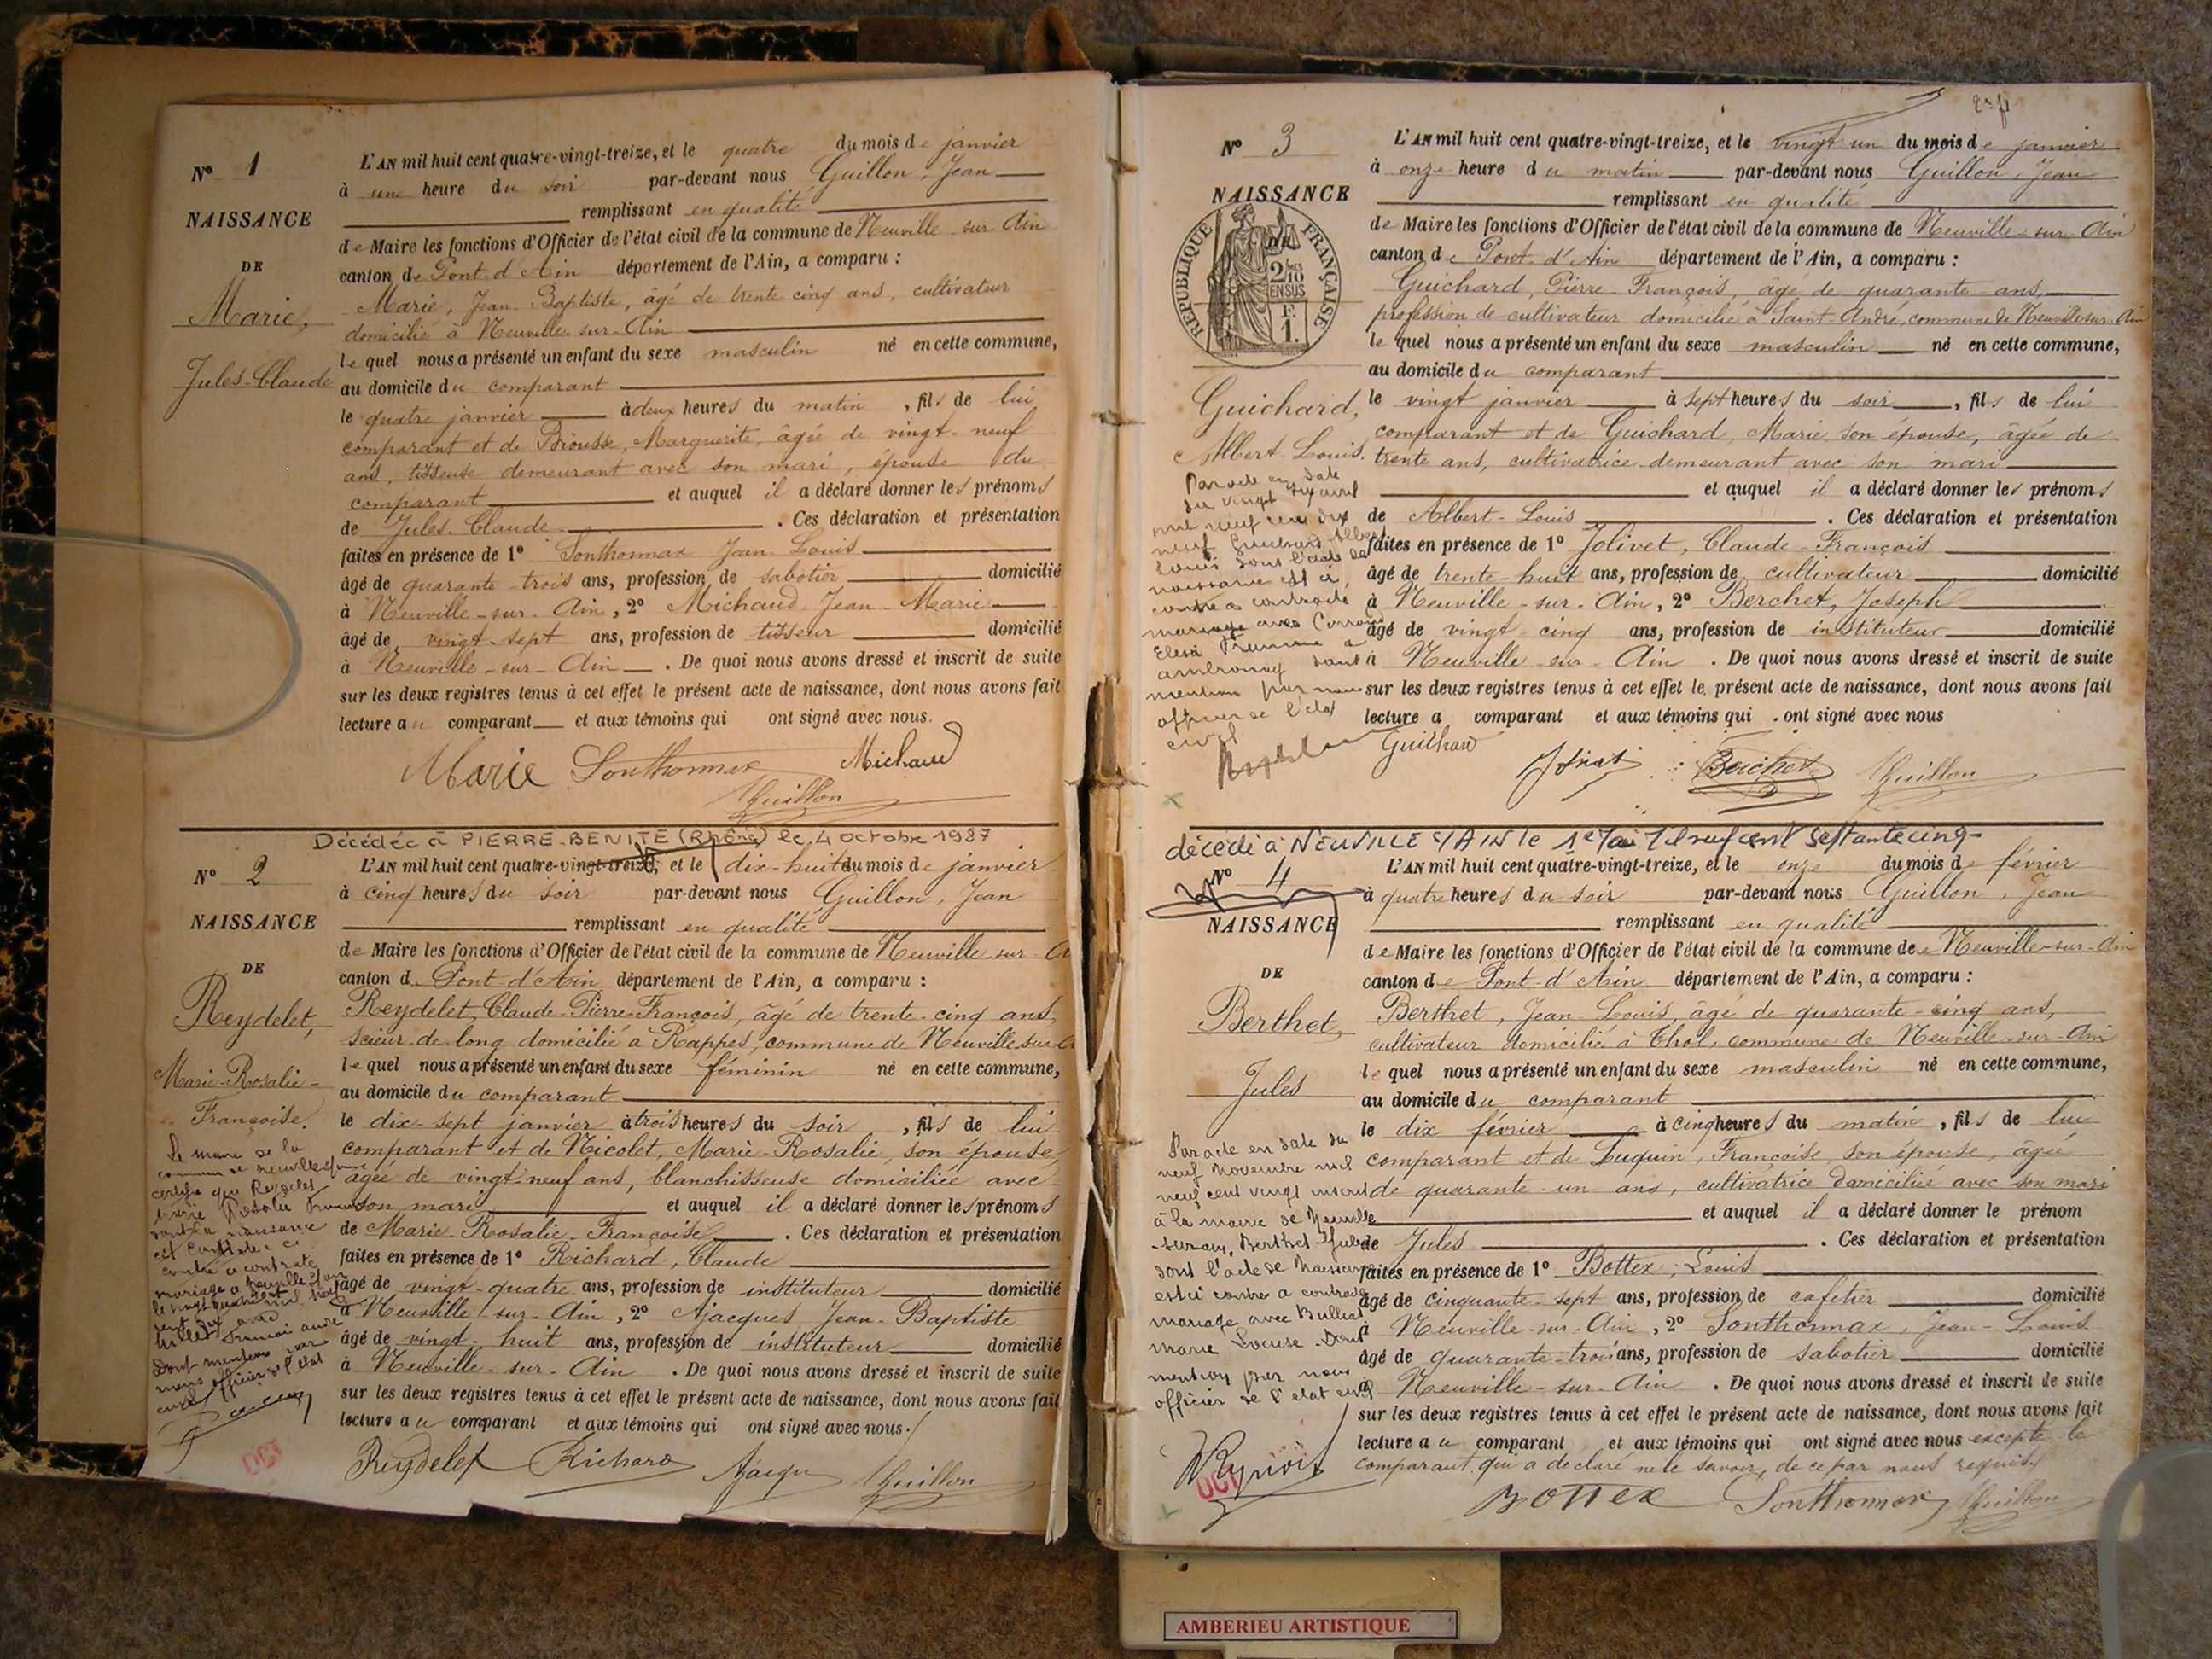 Nº 1
NAISSANCE
DE
Marie,
Jules-Claude
L'AN mil huit cent quatre-vingt-treize, et le quatre du mois de janvier
à une heure du soir par-devant nous Guillon, Jean
remplissant en qualité
de Maire les fonctions d'Officier de l'état civil de la commune de Neuville-sur-Ain
canton de Pont-d'Ain département de l'Ain, a comparu :
Marie, Jean-Baptiste, âgé de trente cinq ans, cultivateur
domicilié à Neuville-sur-Ain
lequel nous a présenté un enfant du sexe masculin né en cette commune,
au domicile du comparant
le quatre janvier à deux heures du matin, fils de lui
comparant et de Brousse, Marguerite, âgée de vingt-neuf
ans, tisseuse demeurant avec son mari, épouse du
comparant et auquel il a déclaré donner les prénoms
de Jules-Claude. Ces déclaration et présentation
faites en présence de 1º Sonthonnax Jean-Louis
âgé de quarante-trois ans, profession de sabotier domicilié
à Neuville-sur-Ain, 2º Michaud Jean-Marie
âgé de vingt-sept ans, profession de tisseur domicilié
à Neuville-sur-Ain. De quoi nous avons dressé et inscrit de suite
sur les deux registres tenus à cet effet le présent acte de naissance, dont nous avons fait
lecture au comparant et aux témoins qui ont signé avec nous.
Marie Sonthonnax Michaud
Guillon
Décédée à PIERRE-BENITE (Rhône) le 4 octobre 1987
Nº 2
NAISSANCE
DE
Reydelet,
Marie-Rosalie-
Françoise.
L'AN mil huit cent quatre-vingt-treize, et le dix-huit du mois de janvier
à cinq heures du soir par-devant nous Guillon, Jean
remplissant en qualité
de Maire les fonctions d'Officier de l'état civil de la commune de Neuville-sur-
canton de Pont d'Ain département de l'Ain, a comparu :
Reydelet, Claude-Pierre-François, âgé de trente-cinq ans,
scieur de long domicilié à Rappes, commune de Neuville-sur-
lequel nous a présenté un enfant du sexe féminin né en cette commune,
au domicile du comparant
le dix-sept janvier à trois heures du soir, fils de lui
comparant et de Nicolet, Marie-Rosalie, son épouse,
âgée de vingt-neuf ans, blanchisseuse domiciliée avec
son mari et auquel il a déclaré donner les prénoms
de Marie-Rosalie-Françoise. Ces déclaration et présentation
faites en présence de 1º Richard, Claude
âgé de vingt-quatre ans, profession de instituteur domicilié
à Neuville-sur-Ain, 2º Ajacques Jean-Baptiste
âgé de vingt-huit ans, profession de instituteur domicilié
à Neuville-sur-Ain. De quoi nous avons dressé et inscrit de suite
sur les deux registres tenus à cet effet le présent acte de naissance, dont nous avons fait
lecture au comparant et aux témoins qui ont signé avec nous.
Le maire de la
commune de neuville
certifie que Reydelet
Marie Rosalie
dont la naissance
est constatée ci
contre a contracté
mariage à neuville
Dont mention par
nous officier de l'état
civil
OCT
Reydelet Richard Guillon
Nº 3
NAISSANCE
DE
RÉPUBLIQUE FRANÇAISE
2/10 EN SUS
F. 1.
Guichard,
Albert-Louis.
L'AN mil huit cent quatre-vingt-treize, et le vingt un du mois de janvier
à onze heure du matin par-devant nous Guillon, Jean
remplissant en qualité
de Maire les fonctions d'Officier de l'état civil de la commune de Neuville-sur-Ain
canton de Pont-d'Ain département de l'Ain, a comparu :
Guichard, Pierre-François, âgé de quarante ans,
profession de cultivateur domicilié à Saint-André, commune de Neuville-sur-Ain
lequel nous a présenté un enfant du sexe masculin né en cette commune,
au domicile du comparant
le vingt janvier à sept heures du soir, fils de lui
comparant et de Guichard, Marie son épouse, âgée de
trente ans, cultivatrice demeurant avec son mari
et auquel il a déclaré donner les prénoms
de Albert-Louis. Ces déclaration et présentation
faites en présence de 1º Jolivet, Claude-François
âgé de trente-huit ans, profession de cultivateur domicilié
à Neuville-sur-Ain, 2º Berchet, Joseph
âgé de vingt-cinq ans, profession de instituteur domicilié
à Neuville-sur-Ain. De quoi nous avons dressé et inscrit de suite
sur les deux registres tenus à cet effet le présent acte de naissance, dont nous avons fait
lecture a comparant et aux témoins qui ont signé avec nous
Par acte en date
du vingt six avril
mil neuf cent dix
neuf Guichard Albert
Louis dont l'acte de
naissance est ci
contre a contracté
mariage avec
ambronay dont
mention par nous
officier de l'état
civil
Guichard Berchet Guillon
décédé à NEUVILLE S/AIN le 1er Mai mil neuf cent septante cinq
Nº 4
NAISSANCE
DE
Berthet,
Jules
L'AN mil huit cent quatre-vingt-treize, et le onze du mois de février
à quatre heures du soir par-devant nous Guillon, Jean
remplissant en qualité
de Maire les fonctions d'Officier de l'état civil de la commune de Neuville-sur-Ain
canton de Pont-d'Ain département de l'Ain, a comparu :
Berthet, Jean-Louis, âgé de quarante-cinq ans,
cultivateur domicilié à Thol, commune de Neuville-sur-Ain
lequel nous a présenté un enfant du sexe masculin né en cette commune,
au domicile du comparant
le dix février à cinq heures du matin, fils de lui
comparant et de Luquin, Françoise, son épouse, âgée
de quarante-un ans, cultivatrice domiciliée avec son mari
et auquel il a déclaré donner le prénom
de Jules. Ces déclaration et présentation
faites en présence de 1º Bottex, Louis
âgé de cinquante-sept ans, profession de cafetier domicilié
à Neuville-sur-Ain, 2º Sonthonnax, Jean-Louis
âgé de quarante-trois ans, profession de sabotier domicilié
à Neuville-sur-Ain. De quoi nous avons dressé et inscrit de suite
sur les deux registres tenus à cet effet le présent acte de naissance, dont nous avons fait
lecture au comparant et aux témoins qui ont signé avec nous excepté le
comparant qui a déclaré ne le savoir, de ce par nous requis.
Par acte en date du
neuf Novembre mil
neuf cent vingt inscrit
à la mairie de Neuville
-sur-ain, Berthet Jules
dont l'acte de naissance
est ci contre a contracté
mariage avec Bulliat
Marie Dont
mention par nous
officier de l'état civil
OCT
BOTTEX Sonthonnax Guillon
AMBERIEU ARTISTIQUE